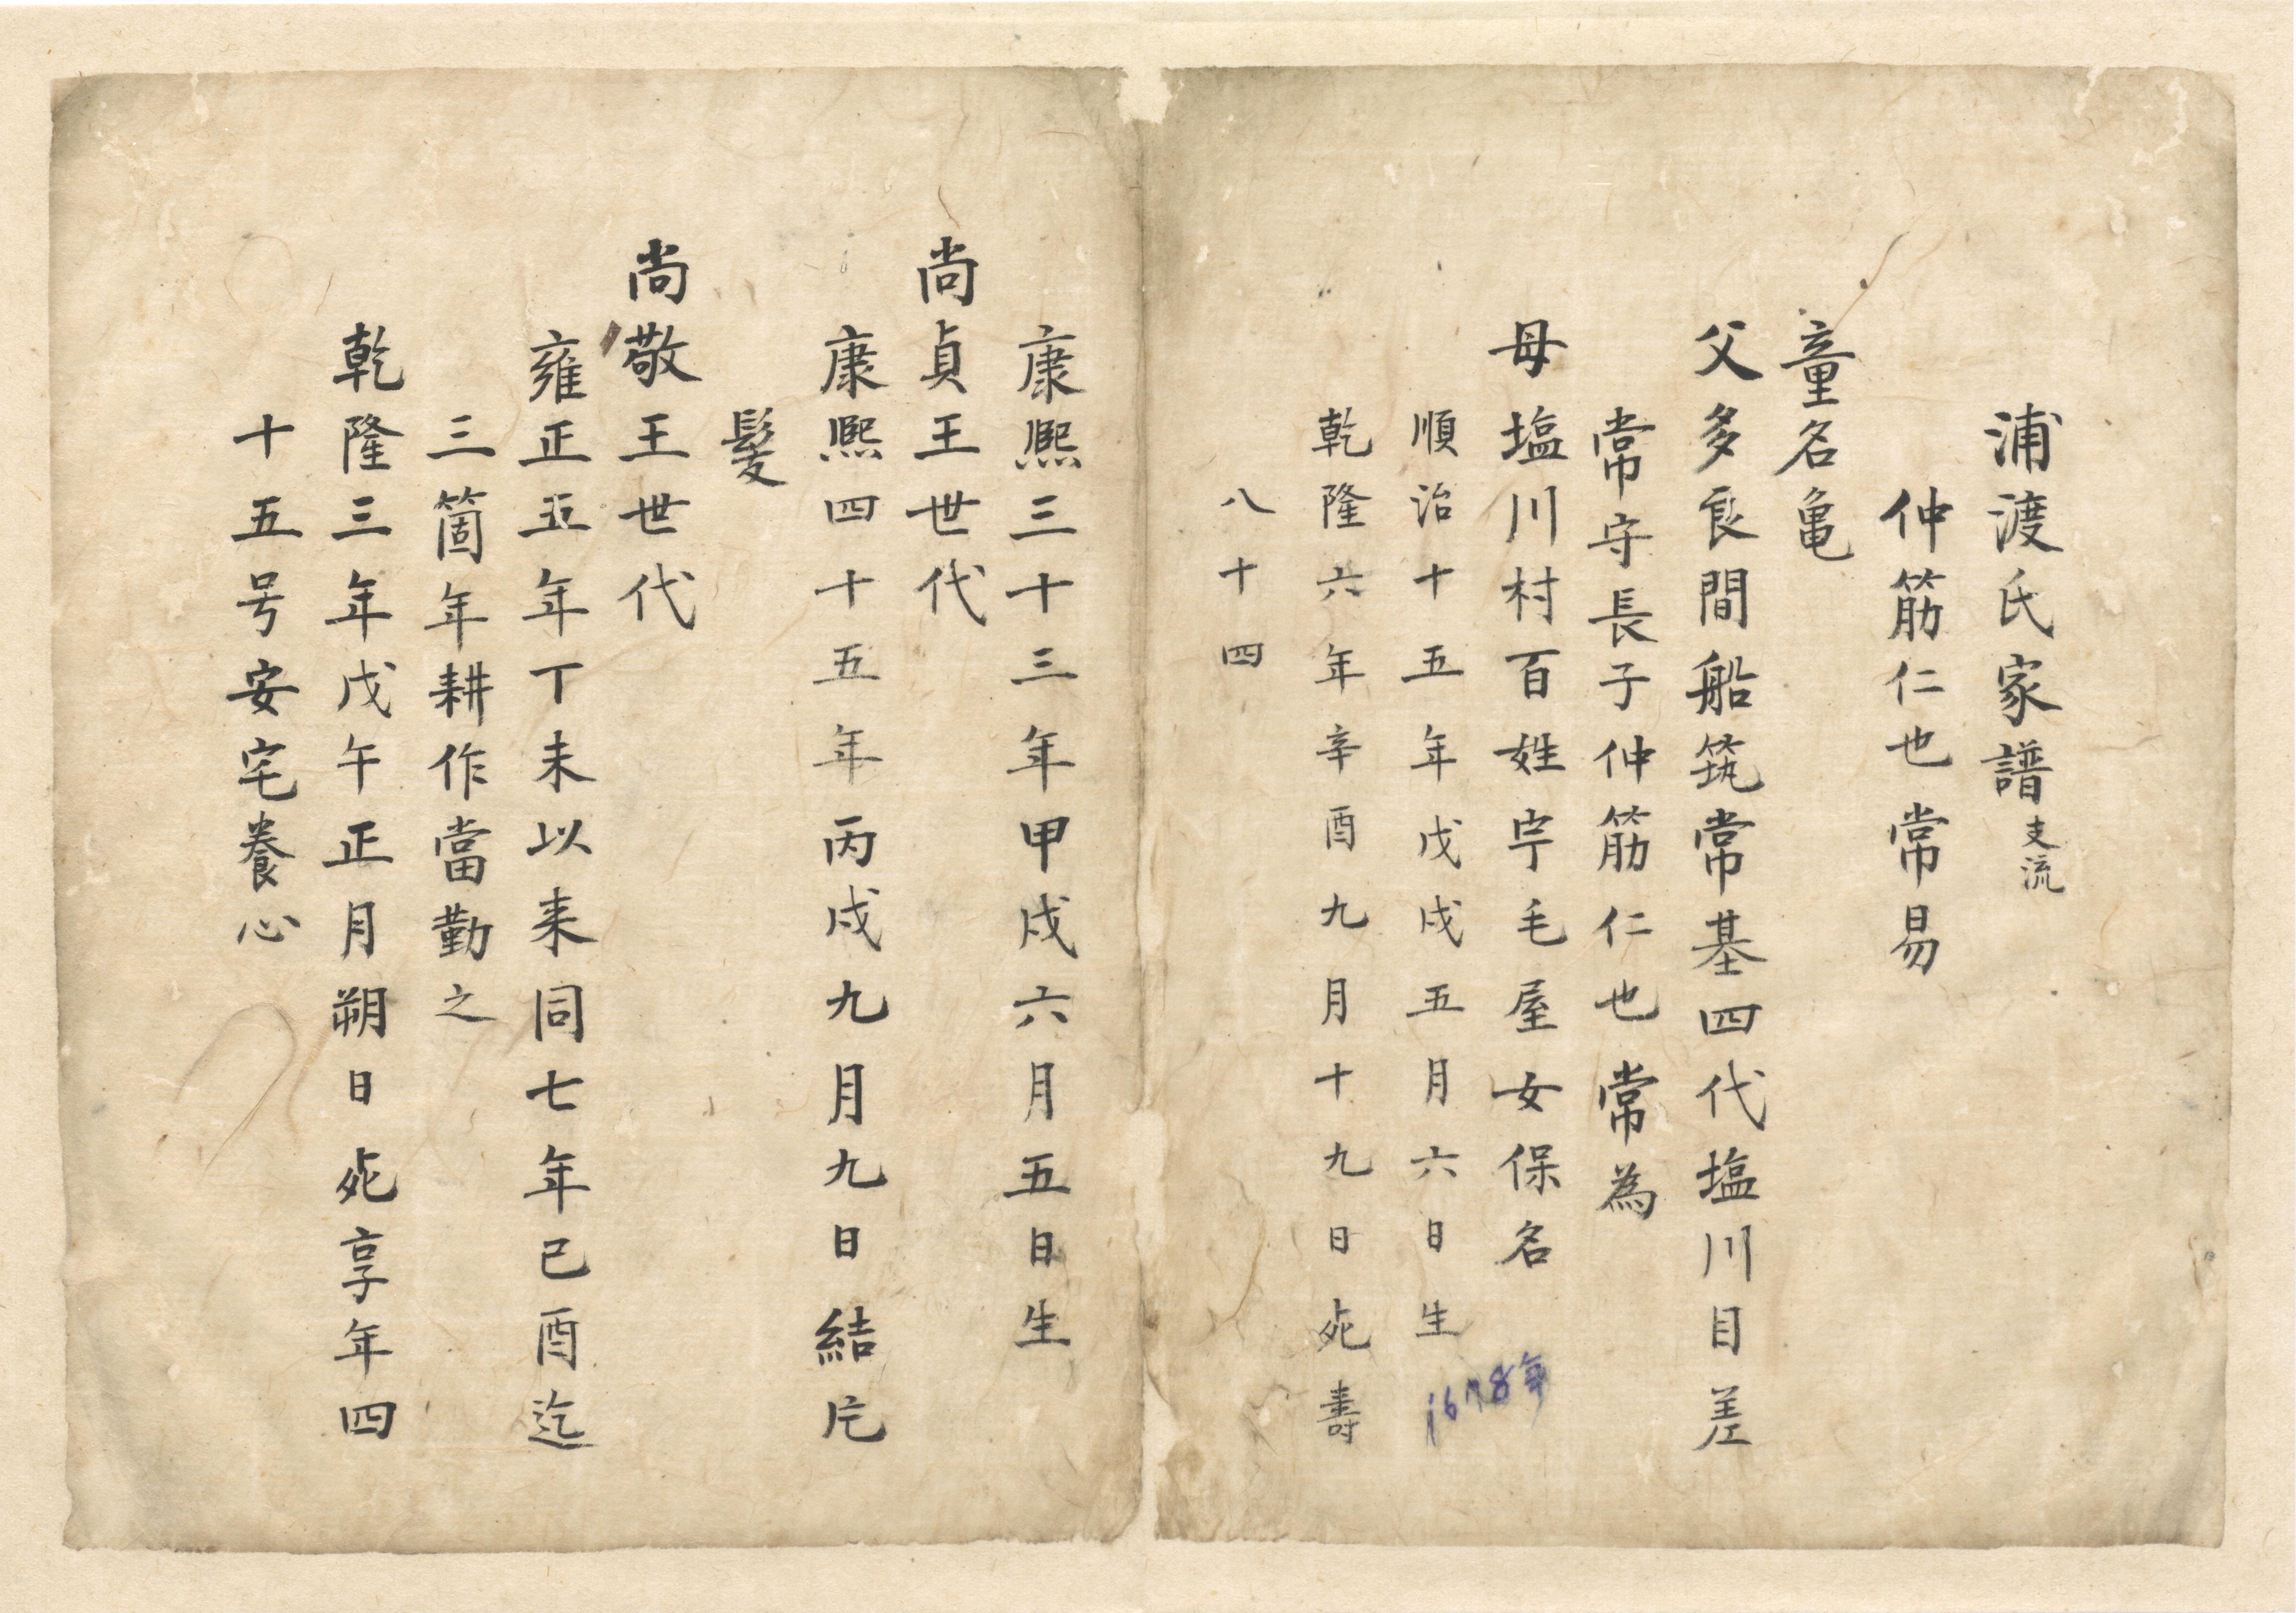 浦渡氏家譜支流
仲筋仁也常易
童名亀
父多良間船筑常基四代塩川目差
常守長子仲筋仁也常為
母塩川村百姓宇毛屋女保名
順治十五年戊戌五月六日生
1678年
乾隆六年辛酉九月十九日死壽
八十四
康熙三十三年甲戌六月五日生
尚貞王世代
康熙四十五年丙戌九月九日結片
髮
尚敬王世代
雍正五年丁未以来同七年己酉迄
三箇年耕作當勤之
乾隆三年戊午正月朔日死享年四
十五号安宅養心